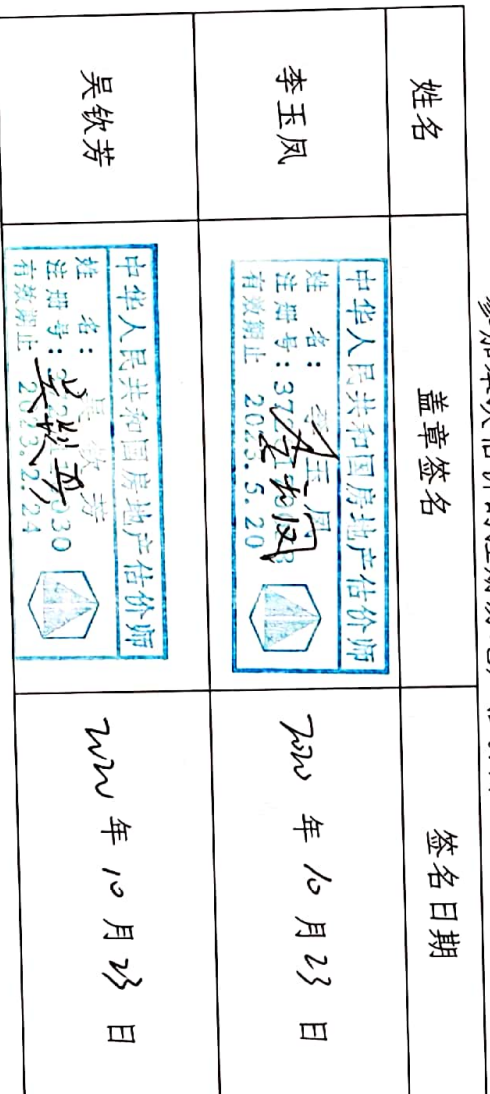 姓名 盖章签名 签名日期
李玉凤
中华人民共和国房地产估价师
姓 名：李玉凤
注册号：
有效期止 2023.5.20
李玉凤
2020 年 10 月 23 日
吴钦芳
中华人民共和国房地产估价师
姓 名：吴钦芳
注册号：
有效期止 2023.2.24
吴钦芳
2020 年 10 月 23 日